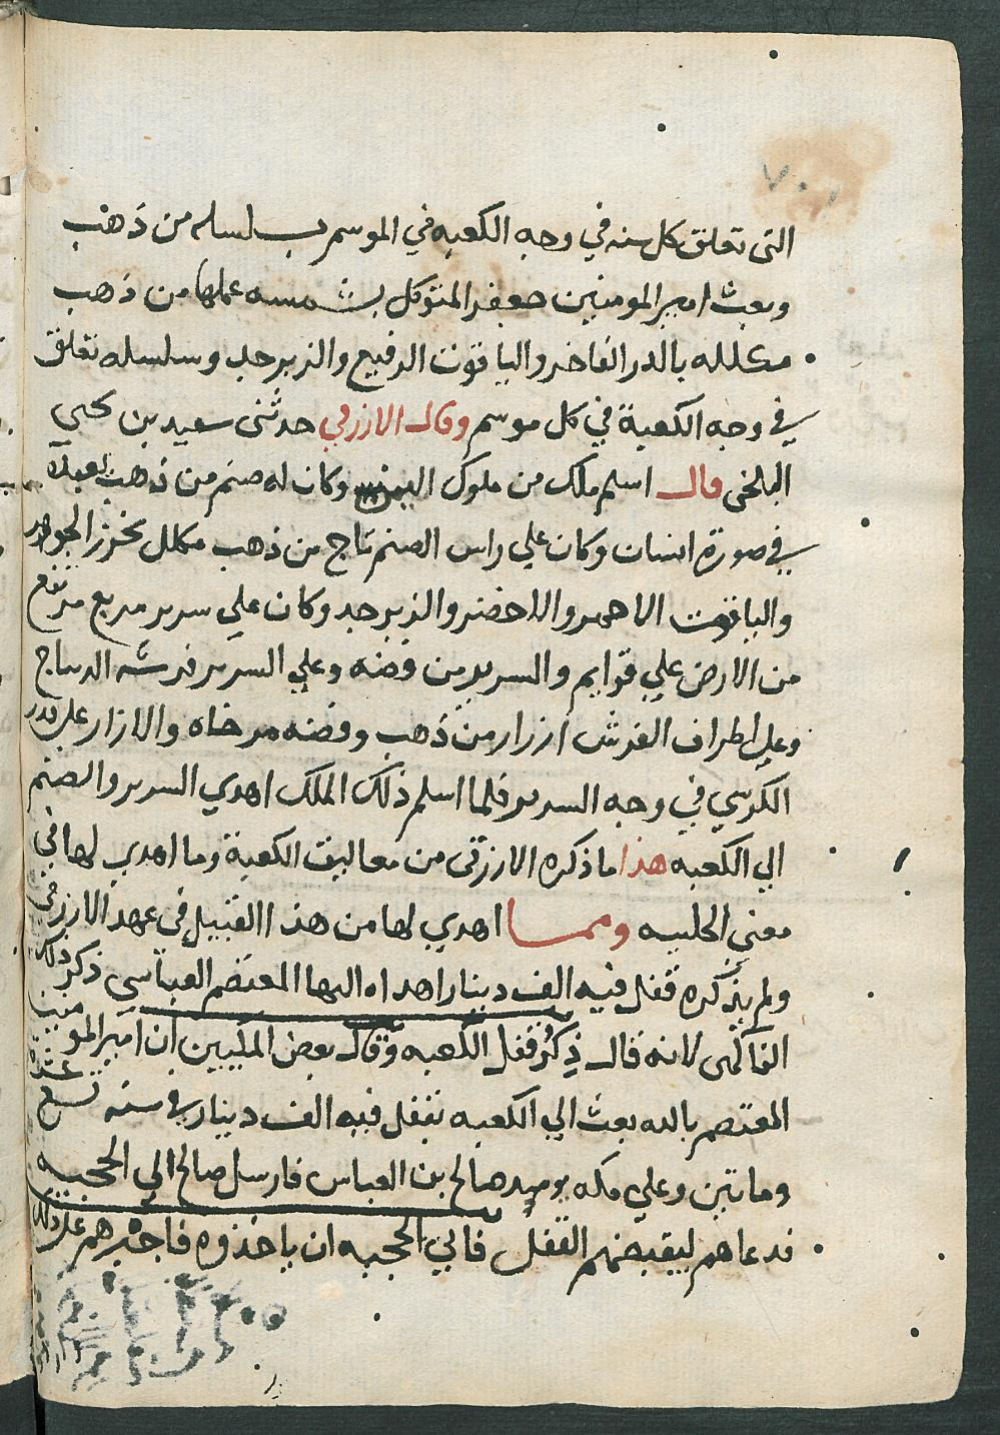 ٧٠
التى تعلق كل سنه في وجه الكعبه في الموسم بسلسله من ذهب
وبعث امير المومنين جعفر المتوكل بشمسه عملها من ذهب
مكلله بالدر الفاخر والياقوت الرفيع والزبرجد وسلسله تعلق
في وجه الكعبة في كل موسم وقال الازرقي حدثنى سعيد بن يحيى
البلخى قال اسلم ملك من ملوك وكان له صنم من ذهب يعبده
في صورة انسان وكان علي راس الصنم تاج من ذهب مكلل بخرز الجوهر
والياقوت الاحمر والاخضر والزبرجد وكان علي سرير مربع مرتفع
من الارض علي قوايم والسرير من فضه وعلي السرير فرشه الديباج
وعلي اطراف الفرش ازرار من ذهب وفضه مرخاه والازار علي قدر
الكرسي في وجه السرير فلما اسلم ذلك الملك اهدي السرير والصنم
الي الكعبه هذا ما ذكره الازرقى من معاليق الكعبة وما اهدي لها في
معني الحليه ومما اهدي لها من هذا القبيل فى عهد الازرقي
ولم يذكره قفل فيه الف دينار اهداه اليها المعتصم العباسي ذكر ذلك
الفاكهى لانه قال ذِكْرُ قفل الكعبه وقال بعض المكيين ان امير المومنين
المعتصم بالله بعث الي الكعبه بقفل فيه الف دينار في سنه تسع عشرة
وماتين وعلي مكه يوميد صالح بن العباس فارسل صالح الي الحجبه
فدعاهم ليقبضهم القفل فابي الحجبه ان ياخذوه فاجبرهم علي ذلك